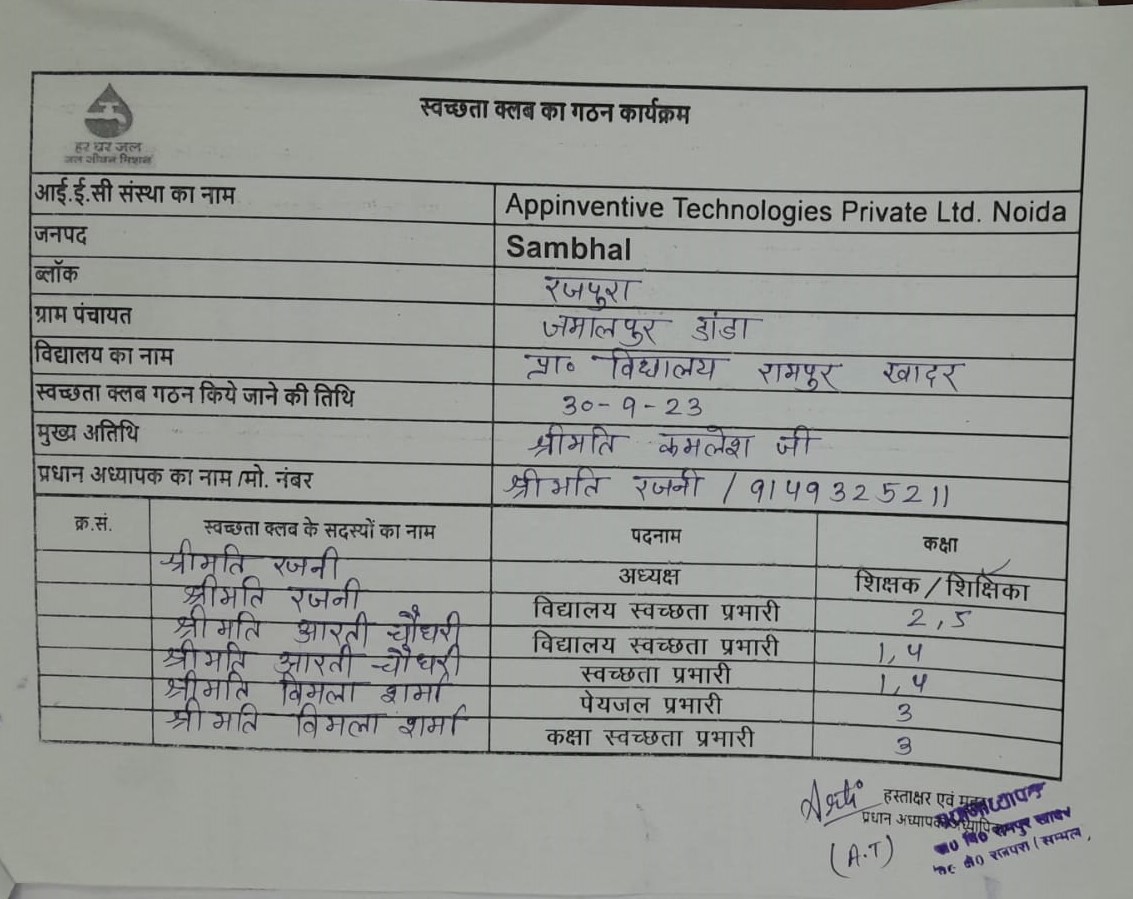 स्वच्छता क्लब का गठन कार्यक्रम
हर घर जल
जल जीवन मिशन
आई.ई.सी संस्था का नाम Appinventive Technologies Private Ltd. Noida
जनपद Sambhal
ब्लॉक रजपुरा
ग्राम पंचायत जमालपुर डांडा
विद्यालय का नाम प्रा० विद्यालय रामपुर खादर
स्वच्छता क्लब गठन किये जाने की तिथि 30-9-23
मुख्य अतिथि श्रीमति कमलेश जी
प्रधान अध्यापक का नाम /मो. नंबर श्रीमति रजनी / 9149325211
क्र.सं. स्वच्छता क्लव के सदस्यों का नाम पदनाम कक्षा
श्रीमति रजनी अध्यक्ष शिक्षक / शिक्षिका
श्रीमति रजनी विद्यालय स्वच्छता प्रभारी 2,5
श्रीमति आरती चौधरी विद्यालय स्वच्छता प्रभारी 1,4
श्रीमति आरती चौधरी स्वच्छता प्रभारी 1,4
श्रीमति विमला शर्मा पेयजल प्रभारी 3
श्रीमति विमला शर्मा कक्षा स्वच्छता प्रभारी 3
हस्ताक्षर एवं
प्रधान अध्यापक
(A.T)
रामपुर खादर